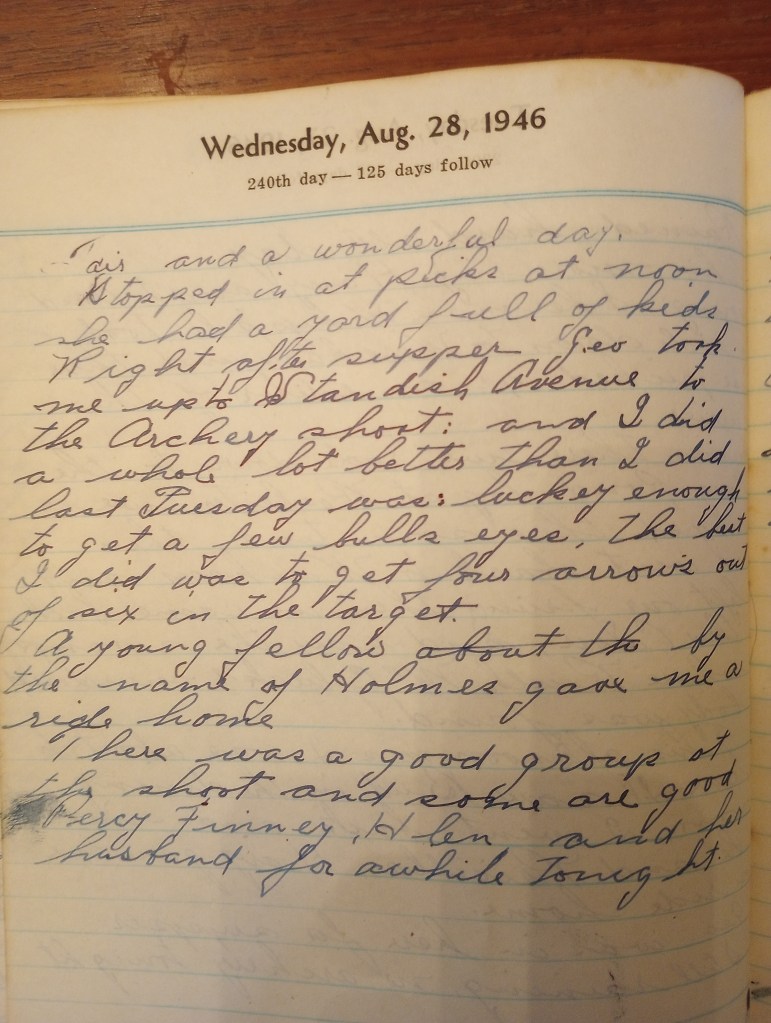 Wednesday, Aug. 28, 1946
240th day — 125 days follow
Fair and a wonderful day.
Stopped in at picks at noon
she had a yard full of kids
Right after supper Geo took
me up to Standish Avenue to
the Archery shoot: and I did
a whole lot better than I did
last Tuesday was: luckey enough
to get a few bulls eyes, The best
I did was to get four arrows out
of six in the target.
A young fellow about th by
the name of Holmes gave me a
ride home
There was a good group at
the shoot and some are good
Percy Finney, Hlen and her
husband for awhile tonight.